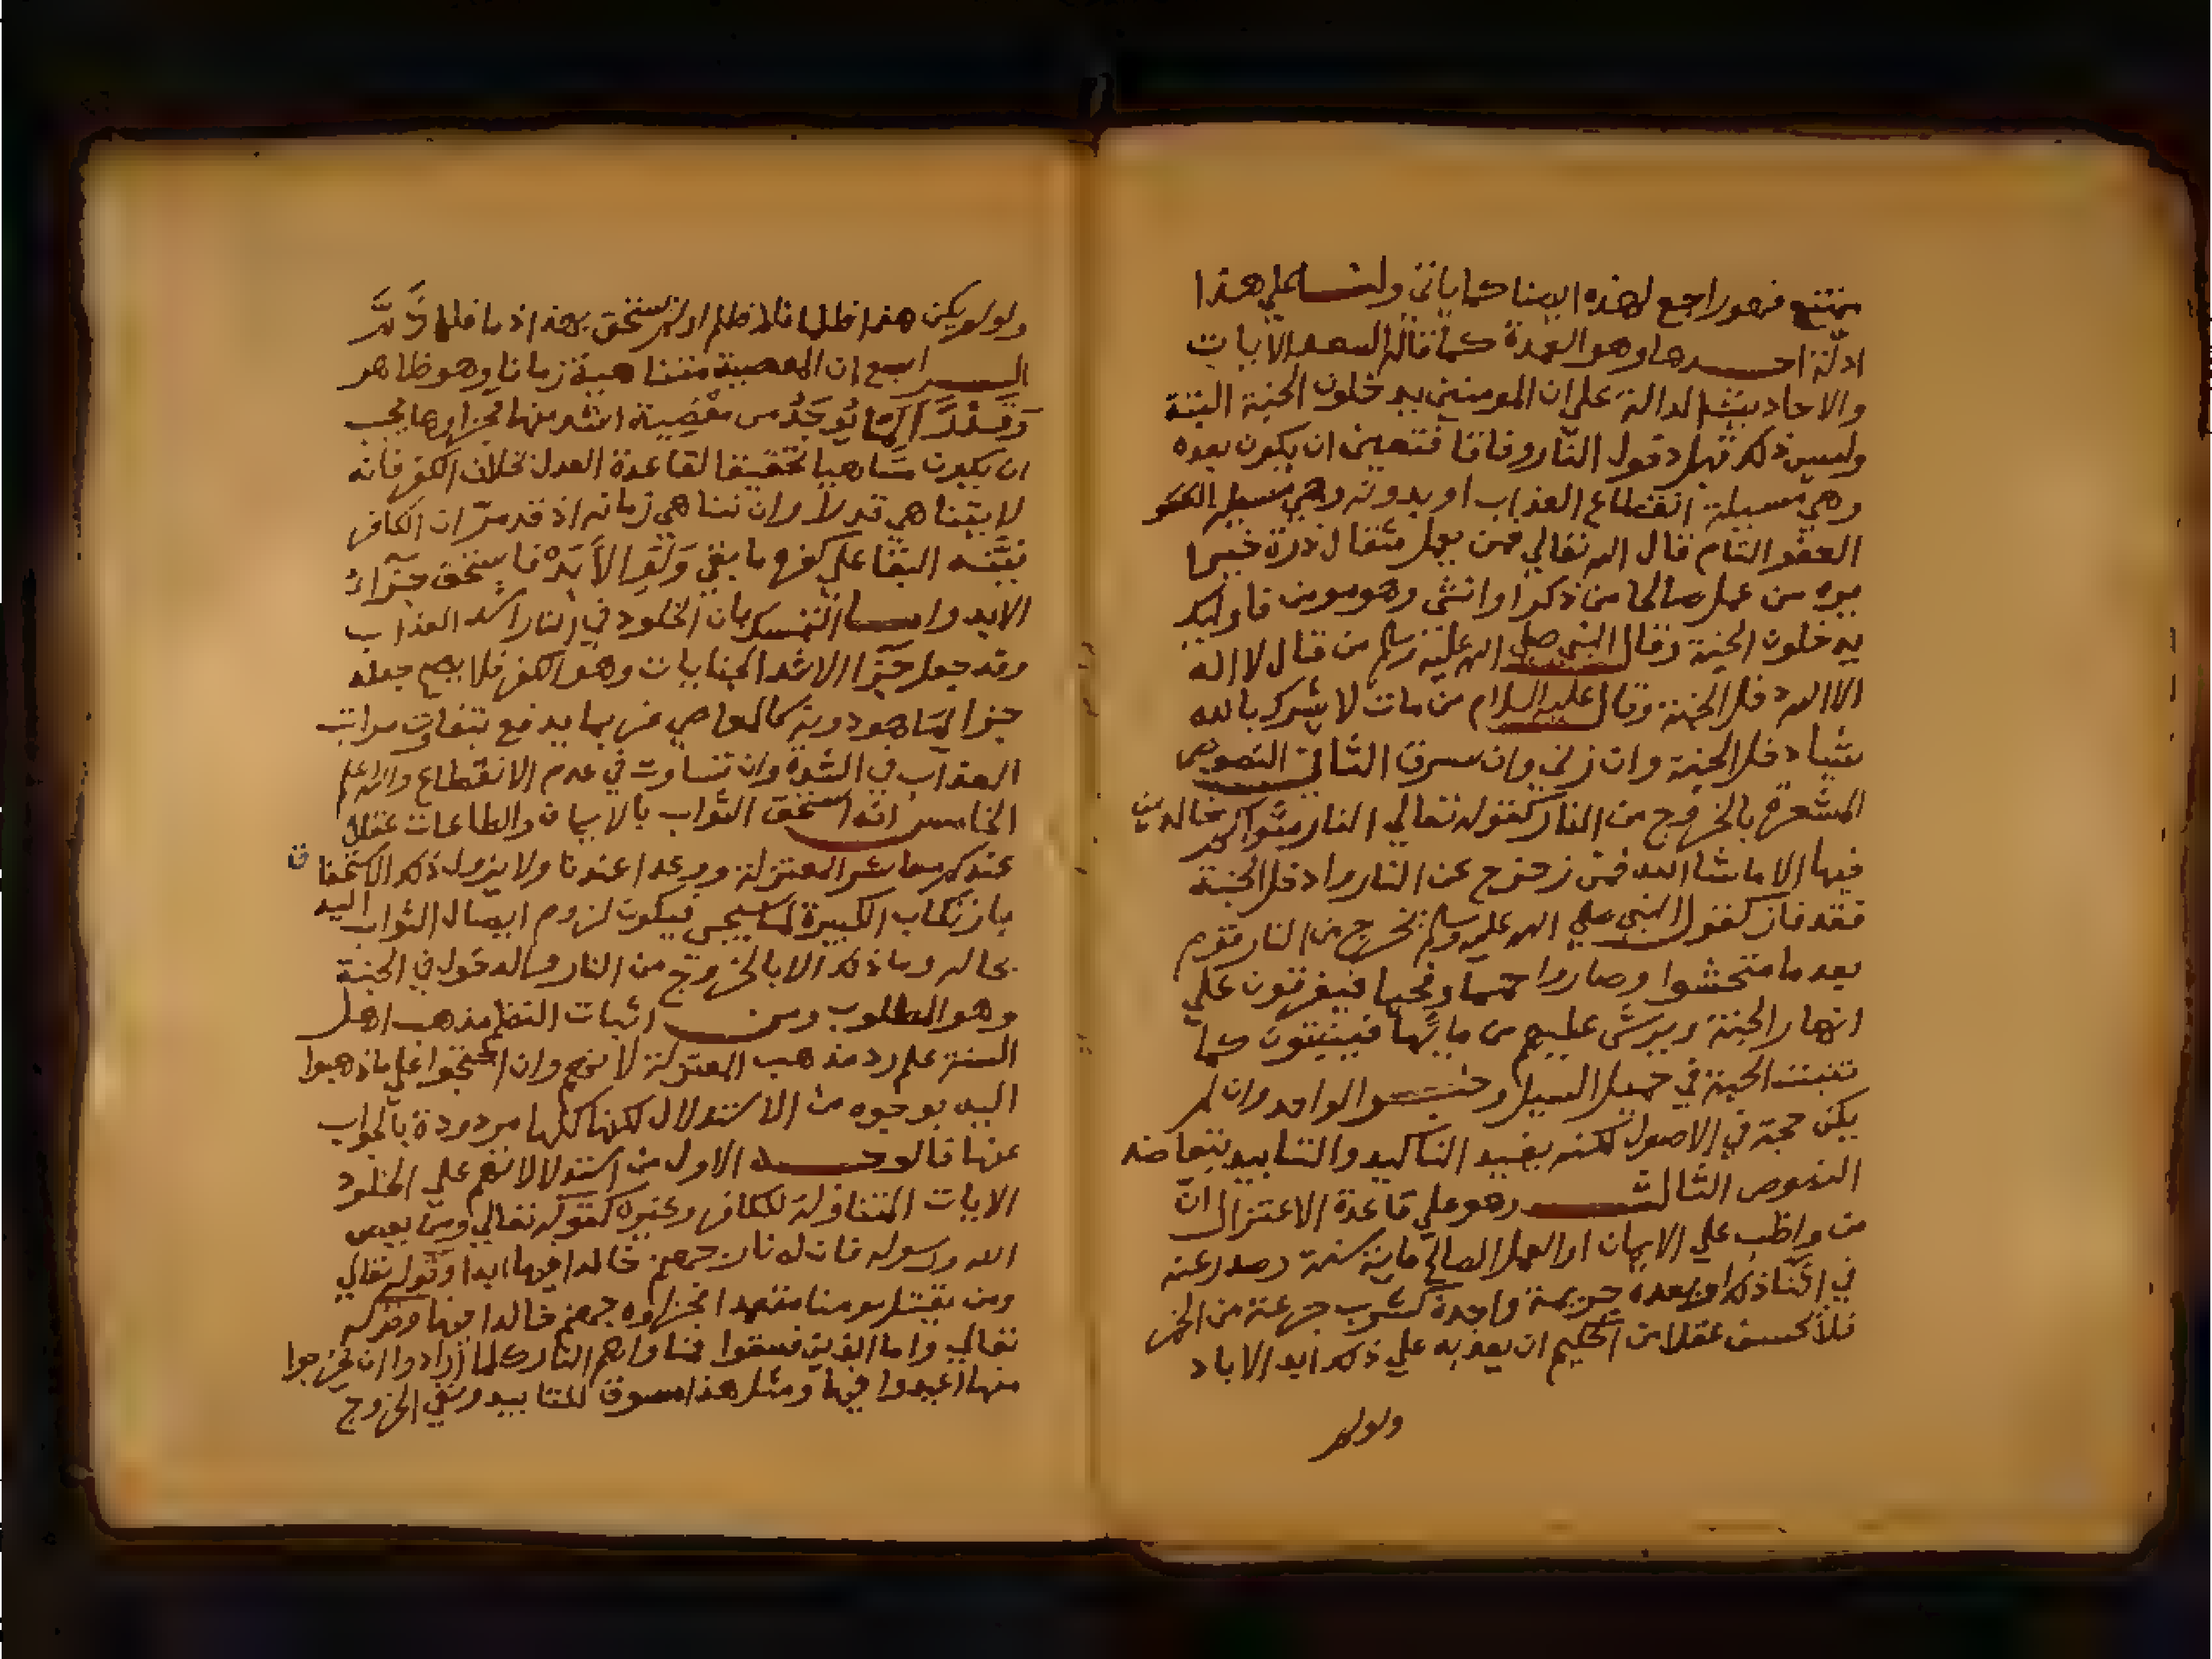 يمتنع فهو راجع لهذه ايضا كما ياتي ولنا علي هذا
ادلة احدها وهو العمدة كما قاله السعد الايات
والاحاديث الدالة علي ان المومنين يدخلون الجنة البتة
وليس ذلك قبل دخول النار وفاقا فتعين ان يكون بعده
وهي مسيلة انقطاع العذاب او بدونه وهي مسيلة
العفو التام قال الله تعالي فمن يعمل مثقال ذرة خيرا
يره من عمل صالحا من ذكر او انثي وهو مومن فاوليك
يدخلون الجنة وقال النبي صلي الله عليه وسلم من قال لا اله
الا الله دخل الجنة وقال عليه السلام من مات لا يشرك بالله
شيا دخل الجنة وان زني وان سرق الثاني النصوص
المشعرة بالخروج من النار كقوله تعالي النار مثواكم خالدين
فيها الا ما شا الله فمن زحزح عن النار وادخل الجنة
فقد فاز كقول النبي صلي الله عليه وسلم يخرج من النار قوم
بعد ما امتحشوا وصاروا حمما وفحما فيفرقون علي
انهار الجنة ويرش عليهم من مايها فينبتون كما
تنبت الحبة في حميل السيل وخبر الواحد وان لم
يكن حجة في الاصول لكنه يفيد التاكيد والتاييد بتعاضد
النصوص الثالث وهو علي قاعدة الاعتزال ان
من واظب علي الايمان او العمل الصالح ماية سنة وصدر عنه
في اثنا ذلك او بعده جريمة واحدة كشرب جرعة من الخمر
فلا يحسن عقلا من الحكيم ان يعذبه علي ذلك ابد الاباد
ولو لم
ولو لم يكن هذا ظلما فلا ظلم او لم يستحق بهذا ذما فلا ذم
الرابع ان المعصية متناهية زمانا وهو ظاهر
وقدرا لما يوجد من معصية اشد منها فجزاوها يجب
ان يكون متناهيا تحقيقا لقاعدة العدل بخلاف الكفر فانه
لا يتناهي قدرا وان تناهي زمانه اذ قد مر ان الكافر
نيته البقا علي كفره ما بقي ولو الابد فاستحق جزاء
الابد واما التمسك بان الخلود في النار اشد العذاب
وقد جعل جزا الاشد الجنايات وهو الكفر فلا يصح جعله
جزا لما هو دونه كالمعاصي فربما يدفع بتفاوت مراتب
العذاب في الشدة وان تساوت في عدم الانقطاع والله اعلم
الخامس انه استحق الثواب بالايمان والطاعات عقلا
عندكم معاشر المعتزلة ووعدا عندنا ولا يزول ذلك الاستحقاق
بارتكاب الكبيرة لما سيجي فيكون لزوم ايصال الثواب اليه
بحاله وما ذلك الا بالخروج من النار والدخول في الجنة
وهو المطلوب ومن اثبات النظم مذهب اهل
السنة علم رد مذهب المعتزلة لانهم وان احتجوا علي ما ذهبوا
اليه بوجوه من الاستدلال لكنها كلها مردودة بالجواب
عنها فالوجه الاول من استدلالاتهم علي الخلود
الايات المتناولة للكافر وغيره كقوله تعالي ومن يعص
الله ورسوله فان له نار جهنم خالدا فيها ابدا وقوله تعالي
ومن يقتل مومنا متعمدا فجزاوه جهنم خالدا فيها وقوله
تعالي واما الذين فسقوا فماواهم النار كلما ارادوا ان يخرجوا
منها اعيدوا فيها ومثل هذا مسوق للتابيد ونفي الخروج